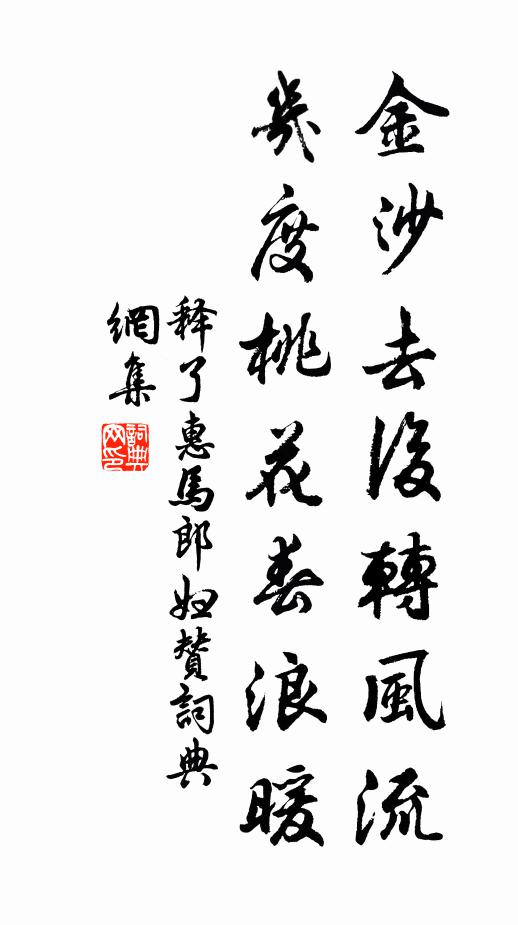 金沙去後轉風流
幾度桃花春浪暖
釋了惠馬郎婦贊詞典
網集
詞典网印